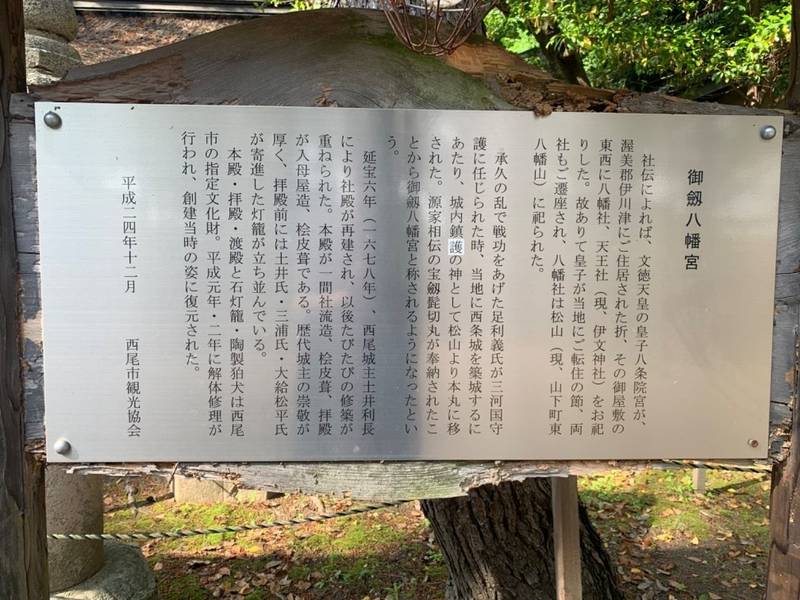 御劔八幡宮
社伝によれば、文徳天皇の皇子八条院宮が、
渥美郡伊川津にご住居された折、その御屋敷の
東西に八幡社、天王社（現、伊文神社）をお祀
りした。故ありて皇子が当地にご転住の節、両
社もご遷座され、八幡社は松山（現、山下町東
八幡山）に祀られた。
承久の乱で戦功をあげた足利義氏が三河国守
護に任じられた時、当地に西条城を築城するに
あたり、城内鎮護の神として松山より本丸に移
された。源家相伝の宝劔髭切丸が奉納されたこ
とから御劔八幡宮と称されるようになったとい
う。
延宝六年（一六七八年）、西尾城主土井利長
により社殿が再建され、以後たびたびの修築が
重ねられた。本殿が一間社流造、桧皮葺、拝殿
が入母屋造、桧皮葺である。歴代城主の崇敬が
厚く、拝殿前には土井氏・三浦氏・大給松平氏
が寄進した灯籠が立ち並んでいる。
本殿・拝殿・渡殿と石灯籠・陶製狛犬は西尾
市の指定文化財。平成元年・二年に解体修理が
行われ、創建当時の姿に復元された。
平成二四年十二月　西尾市観光協会